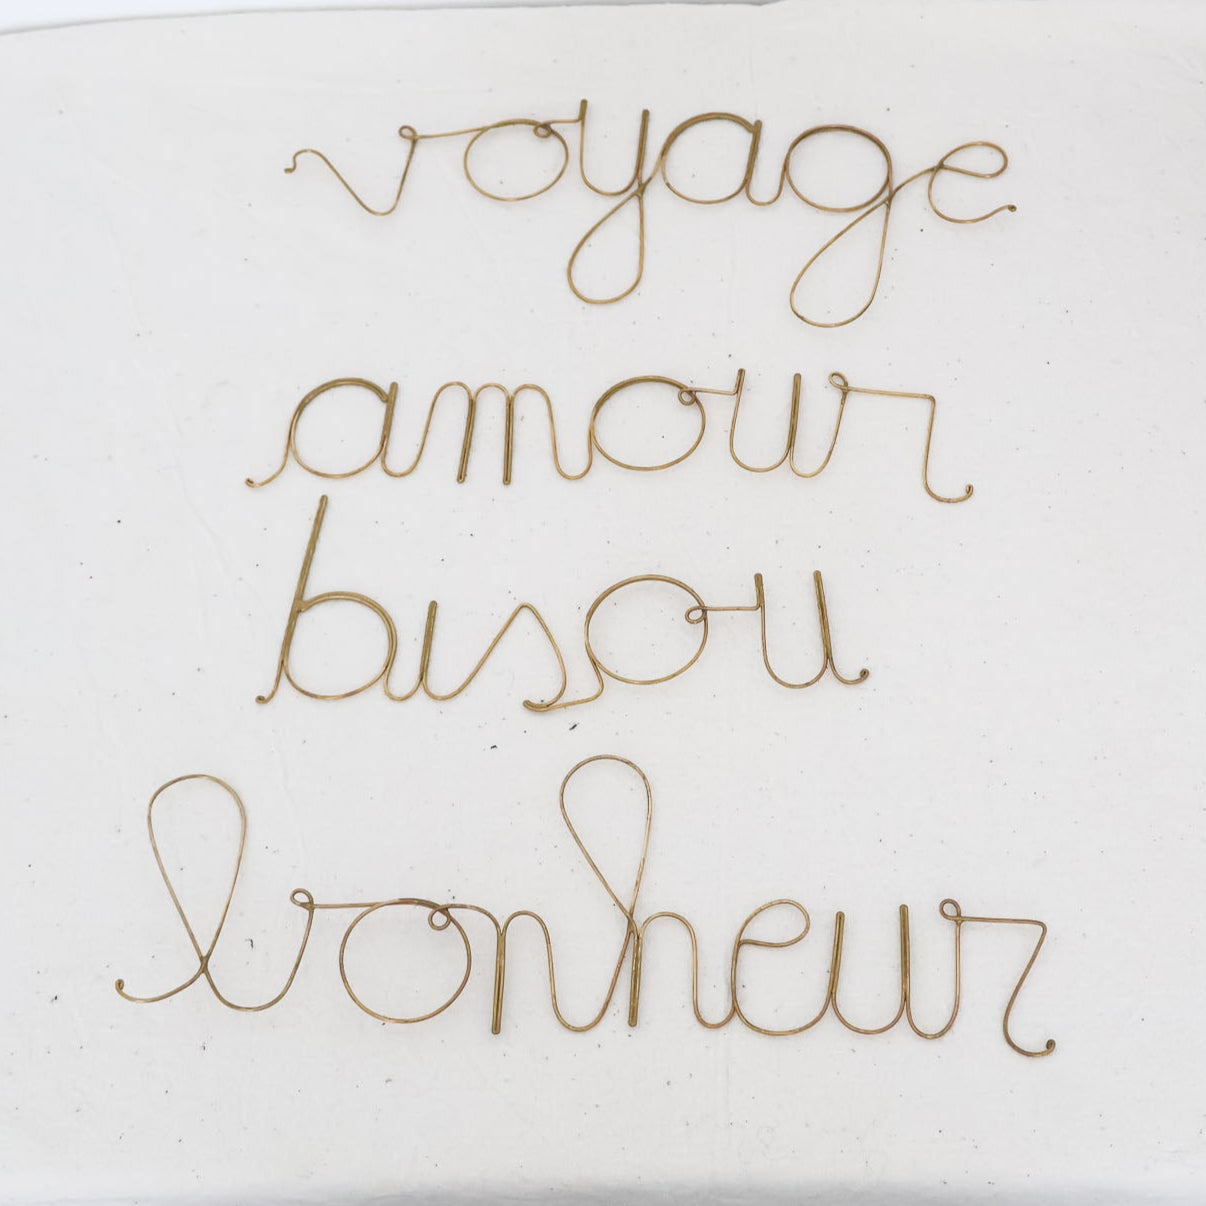 voyage
amour
bisou
bonheur